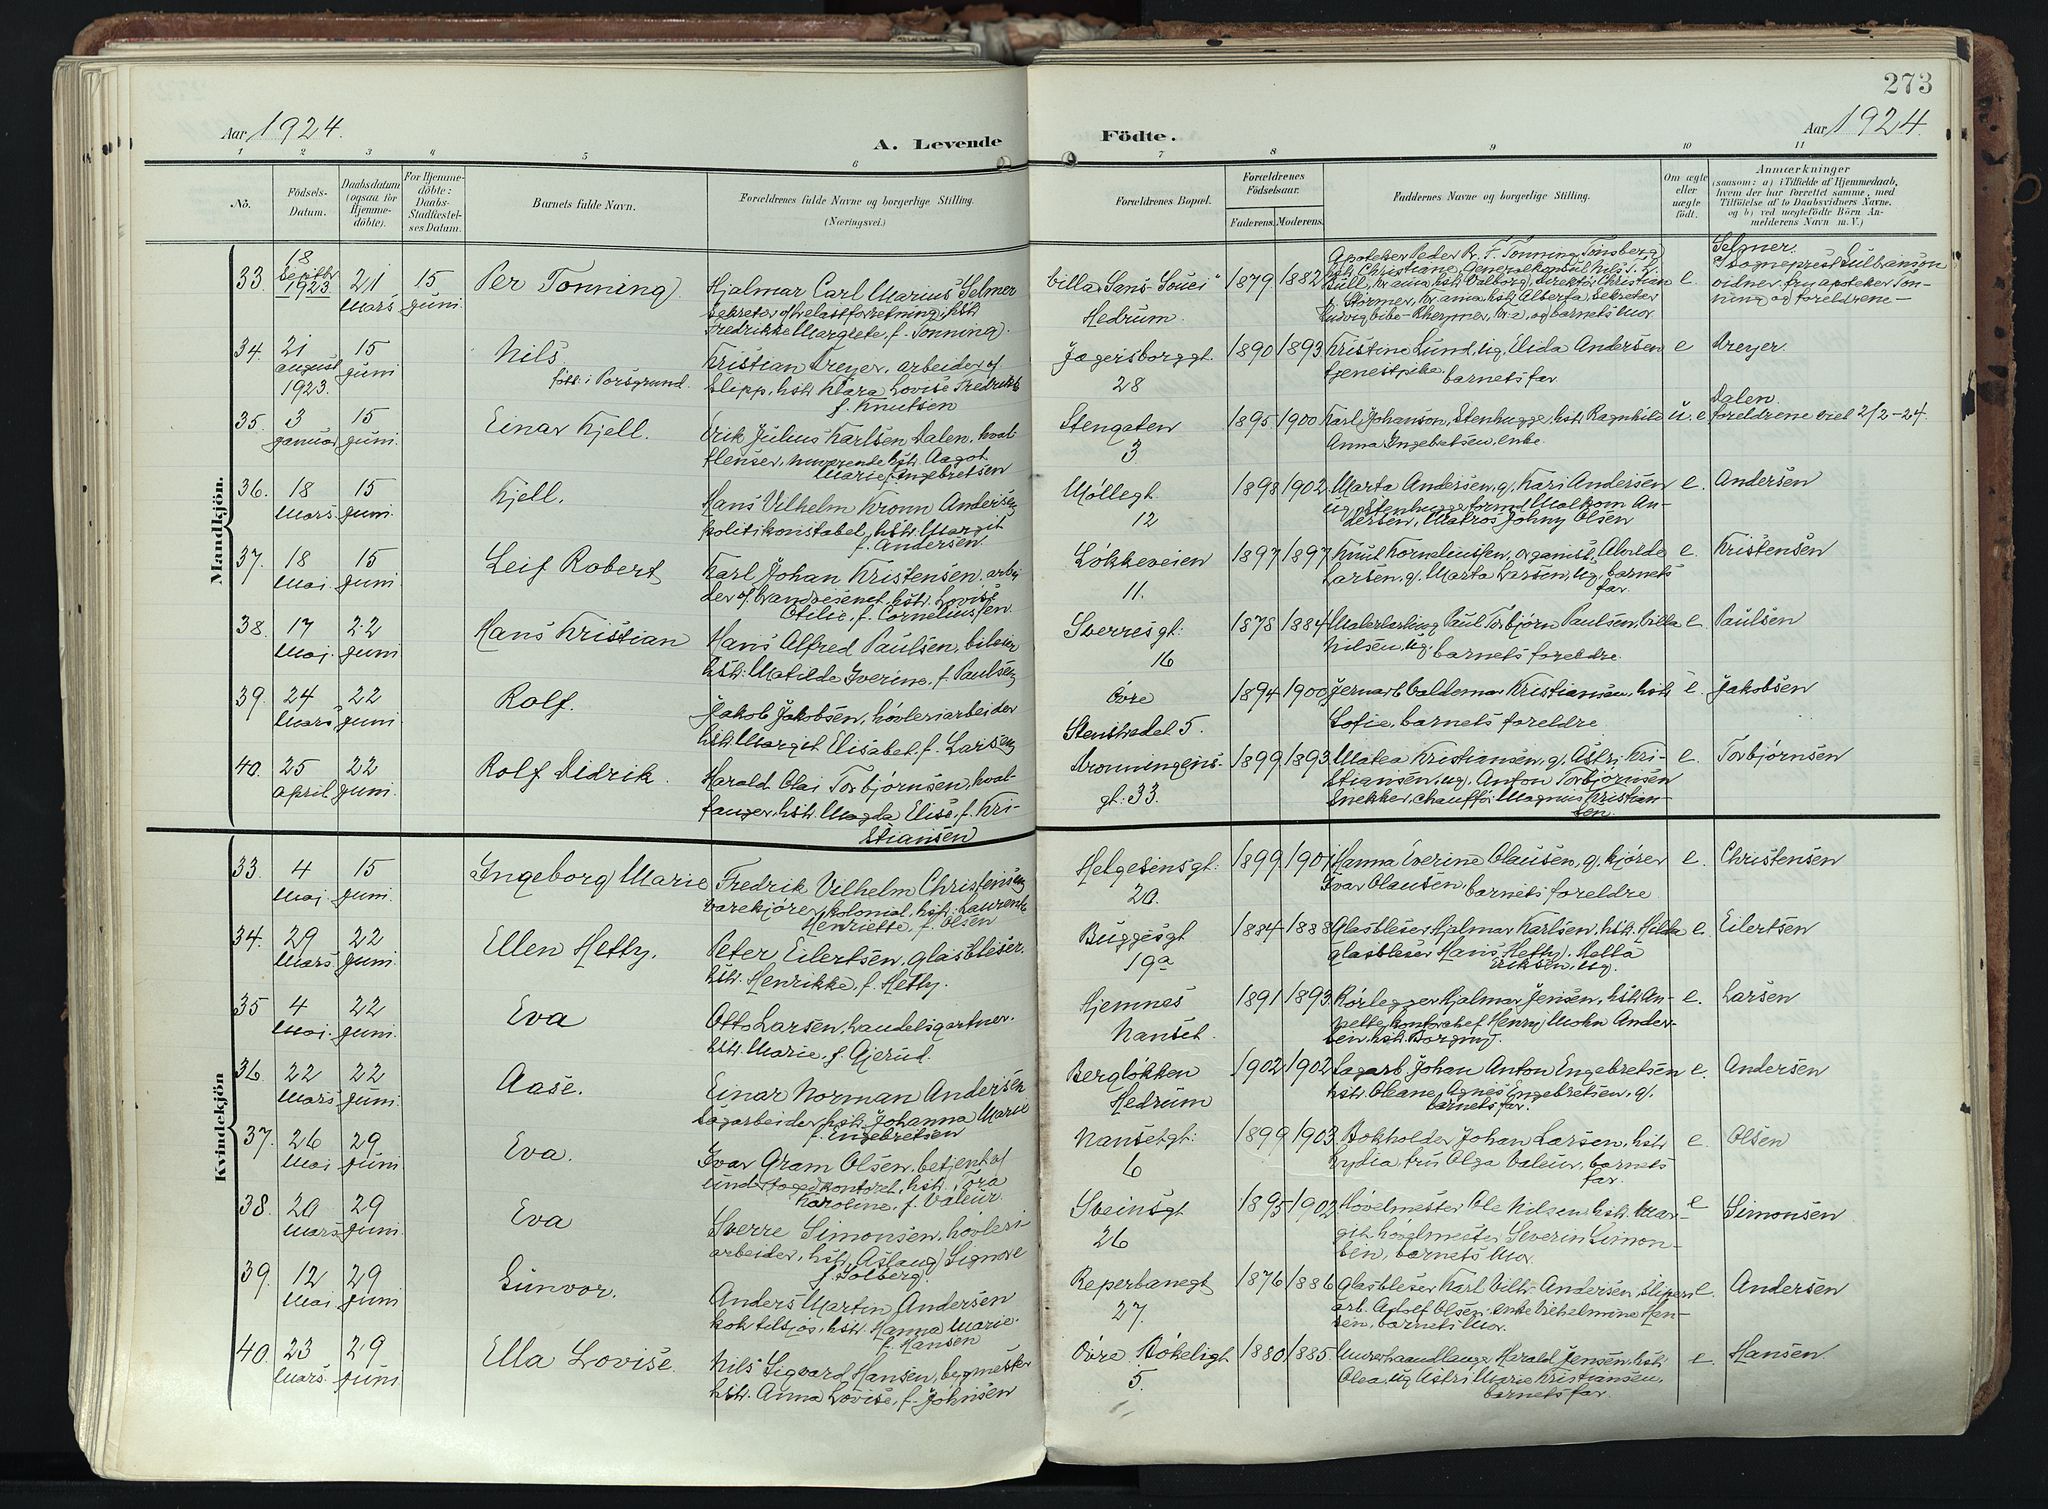 273
Aar 1924.
A. Levende
Födte.
Aar 1924.
1 2 3 4 5 6 7 8 9 10 11
No.
Födsels-
Datum.
Daabsdatum
(ogsaa for
Hjemme-
döbte).
For Hjemme-
döbte:
Daabs-
Stadfæstel-
ses Datum.
Barnets fulde Navn.
Forældrenes fulde Navne og borgerlige Stilling.
(Næringsvei.)
Forældrenes Bopæl.
Forældrenes
Födselsaar.
Faderens. Moderens.
Faddernes Navne og borgerlige Stilling.
Om ægte
eller
uægte
födt.
Anmærkninger
(saasom: a) i Tilfælde af Hjemmedaab,
hvem der har forrettet samme, med
Tilföielse af to Daabsvidners Navne.
og b) ved uægtefödte Börn An-
melderens Navn m. V.)
Mandkjön.
33. 18 Septbr 1923 21 Mars 15 Juni Per Tonning.
Hjalmar Carl Marius Selmer
sekretær hvelastforretning, hstr.
Fredrikke Margrete, f. Tonning.
Villa "Sans-Souci"
Hedrum.
1879 1882
Apoteker Peder R. F. Tonning, Tønsberg,
hstr. Christiane, Generalkonsul Nils
Kr.ania hstr. Valborg, direktør Christian
Størmer, Kr.ania hstr. Alberta, Sekretær
og barnets Mor.
e.
Selmer.
Sogneprest
vidner fru apoteker Ton-
ning og foreldrene
34. 21 August 1923. 15 Juni Nils.
født i Porsgrund.
Kristian Dreyer, arbeider
Slipp, hstr. Klara Lovise Fredrikke
f. Knutsen
Jægersborggt.
28
1890 1893
Kristine Lund, ug. Elida Andersen
tjenestpike, barnets far.
e
Dreyer.
35. 3 Januar 15 Juni Einar Kjell.
Erik Julius Karlsen Dalen, hval-
flenser, nuværende hstr. Aagot
Marie Ingebretsen
Stengaten
3.
1895 1900
Karl Johanson, Stenhugge, hstr. Ragnhild
Anna Ingebretsen, enke.
u. e
Dalen.
foreldrene viet 2/2-24.
36. 18 Mars. 15 Juni. Kjell.
Hans Vilhelm Kronn Andersen
politikonstabel, hstr. Margit
f. Andersen.
Møllegt.
12
1898 1902
Marta Andersen, g. Kari Andersen
ug. Stenhuggerformd Malkom An-
dersen, Matros Johny Olsen
e.
Andersen
37. 18 Mai 15 Juni Leif Robert
Karl Johan Kristensen, arbei
der v/ brandvesenet, hstr. Lovise
Otilie, f. Corneliussen.
Løkkeveien
11.
1897 1897
Knut Korneliussen, organist, Alvilde
Larsen, g. Marta Larsen, ug. barnets
far.
e.
Kristensen
38. 17 Mai. 22 Juni Hans Kristian
Hans Alfred Paulsen, bileier
hstr. Matilde Iverine, f. Paulsen
Sverresgt.
16
1878 1884
Malerlærling Paul Torbjørn Paulsen,
Nilsen, ug. barnets foreldre.
e.
Paulsen
39. 24 Mars 22 Juni. Rolf.
Jakob Jakobsen, høvleriarbeider
hstr. Margit Elisabet, f. Larsen
Övre
Stenstredet 5.
1894 1900
Jernarb. Valdemar Kristiansen, hstr
Sofie, barnets foreldre
e.
Jakobsen
40. 25 April 22 Juni. Rolf Didrik.
Harald Olai Torbjørnsen, hval-
fanger, hstr. Magda Elise, f. Kri-
stiansen
Dronningens-
gt. 33.
1899 1893
Matea Kristiansen, g. Astri Kri-
stiansen, ug. Anton Torbjørnsen
Snekker, chauffør Magnus Kristian-
sen.
e.
Torbjørnsen
Kvindekjön
33. 4 Mai. 15 Juni. Ingeborg Marie
Fredrik Vilhelm Christensen
varekjører, kolonial, hstr. Laurense
Henriette, f. Olsen
Helgesensgt.
20.
1899 1901
Hanna Everine Olausen, g. kjører
Ivar Olausen, barnets foreldre
e.
Christensen
34. 29 Mars 22 Juni. Ellen Hetty.
Peter Eilertsen, glasbleser.
hstr. Henrikke, f. Hetly.
Buggesgt
19a
1884 1888
Glasbleser Hjalmar Karlsen, hstr. Hilda
glasbleser Hans Hetly, Hella
Eriksen, ug.
e.
Eilertsen
35 4 Mai. 22 Juni Eva
Otto Larsen, handelsgartner.
hstr. Marie, f. Gjerud.
Hjemnes
Nanset.
1891 1893
Rørlegger Hjalmar Jensen, hstr. An-
nette, kontorchef Henry Mohn Ander-
sen, hstr. Borgny.
e.
Larsen
36 22 Mars 22 Juni. Aase.
Einar Norman Andersen
Sagarbeider, hstr. Johanna Marie
f. Engebretsen
Bergløkken
Hedrum
1902 1902
Sagarb. Johan Anton Engebretsen
hstr. Oleane, Agnes Engebretsen, g.
barnets far.
e.
Andersen
37. 26 Mai 29 Juni Eva.
Ivar Gram Olsen, betjent v/
underfogedkontoret, hstr. Tora
Karoline, f. Valeur.
Nansetgt.
6
1899 1903
Bokholder Johan Larsen, hstr
Lydia, fru Olga Valeur, barnets
far.
e.
Olsen
38. 20 Mars 29 Juni. Eva
Sverre Simonsen, høvleri
arbeider, hstr. Aslaug Signore
f. Solberg.
Sveinsgt
26
1895 1902
Høvelmester Ole Nilsen, hstr. Mar-
git, høvelmester Severin Simon-
sen, barnets Mor.
e
Simonsen
39. 12 Mai 29 Juni. Gunvor.
Anders Martin Andersen
kok tilsjøs, hstr. Hanna Marie.
f. Hansen
Reperbanegt
27.
1876 1886
Glasbleser Karl Vilh. Andersen, sliperi
arb. Adolf Olsen, enke Vilhelmine Han-
sen, barnets Mor.
e.
Andersen
40. 23 Mars. 29 Juni Ella Lovise.
Nils Sigvard Hansen, bygmester
hstr. Anna Lovise, f. Johnsen
Övre Bøkeligt
5.
1880 1885.
Murerhaandlanger Harald Jensen, hstr
Olea, ug. Astri Marie Kristiansen,
barnets far.
e.
Hansen.